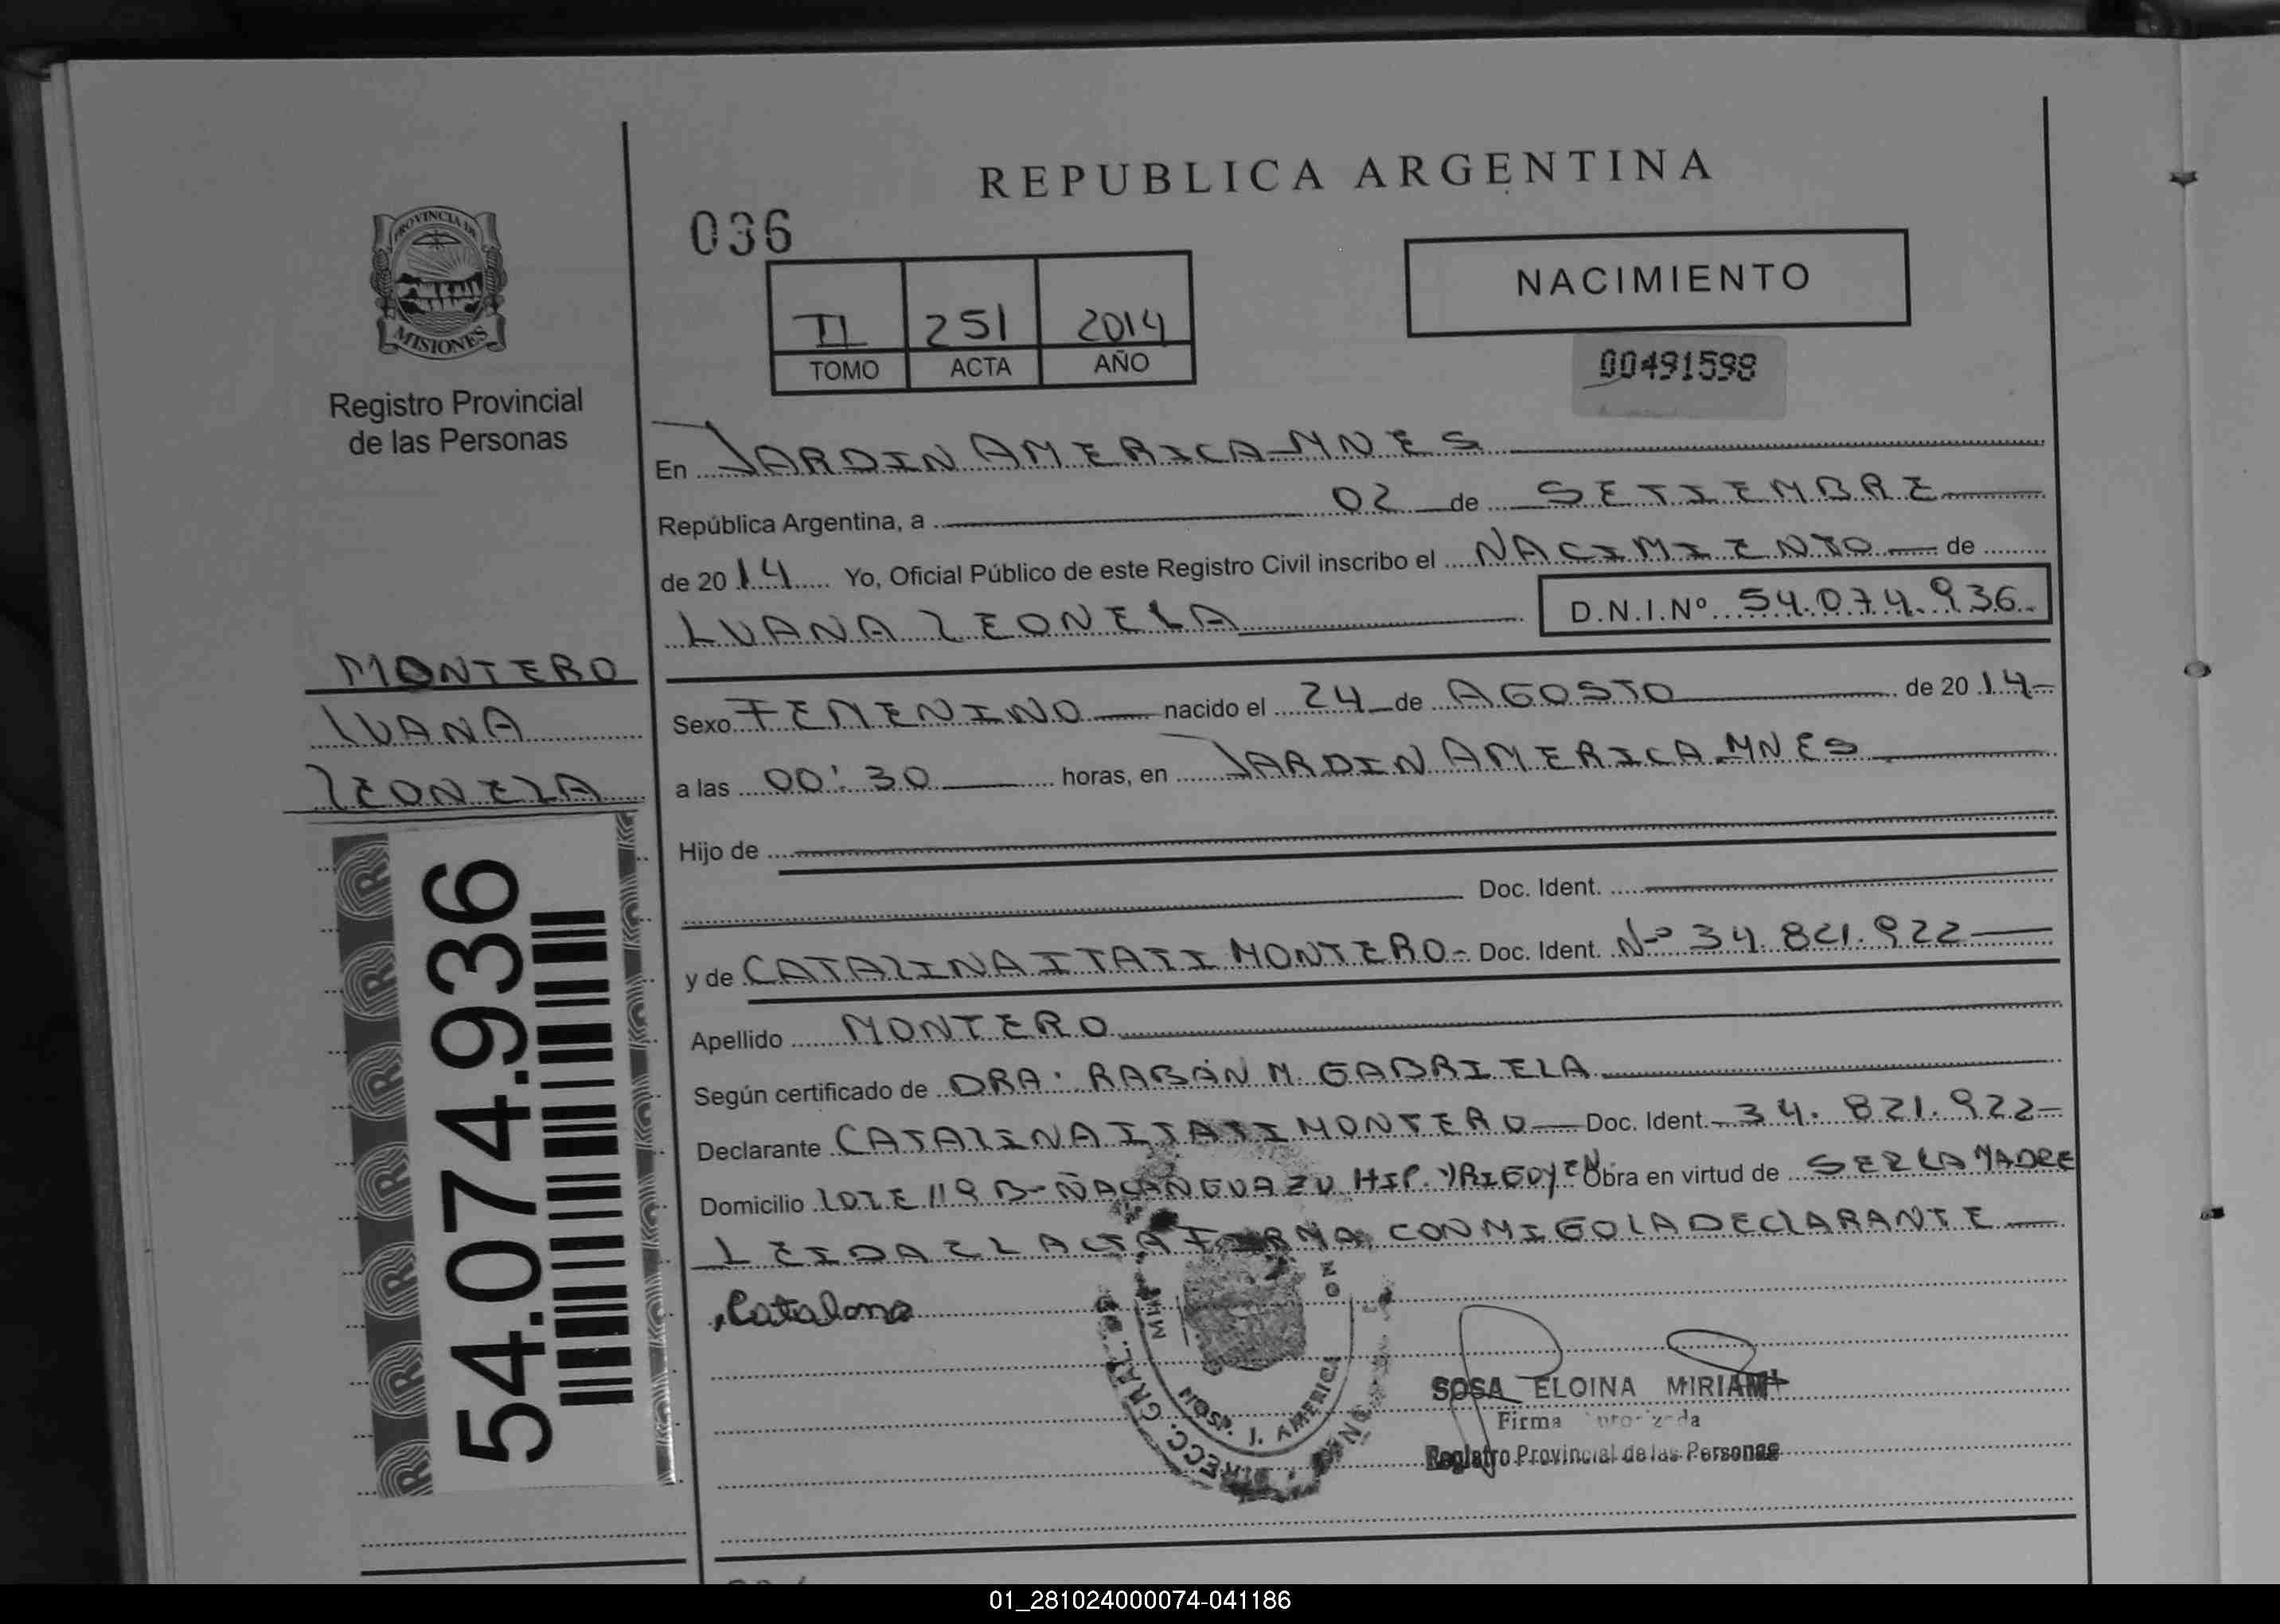 REPUBLICA ARGENTINA
036
PROVINCIA DE
MISIONES
Registro Provincial
de las Personas
II 251 2014
TOMO ACTA AÑO
NACIMIENTO
00491598
En JARDIN AMERICA-MNES
República Argentina, a 02 de SETIEMBRE
de 2014 Yo, Oficial Público de este Registro Civil inscribo el NACIMIENTO de
LUANA LEONELA D.N.I.Nº 54.074.936
MONTERO
LUANA
LEONELA
54.074.936
Sexo FEMENINO nacido el 24 de AGOSTO de 2014
a las 00:30 horas, en JARDIN AMERICA-MNES
Hijo de
Doc. Ident.
y de CATALINA ITATI MONTERO- Doc. Ident. Nº 34.821.922
Apellido MONTERO
Según certificado de DRA. RABÁN M. GABRIELA
Declarante CATALINA ITATI MONTERO Doc. Ident. 34.821.922
Domicilio LOTE 119 B-ÑACANGUAZU HIP. YRIGOYEN Obra en virtud de SER LA MADRE
LEIDA EL ACTA FIRMA CONMIGO LA DECLARANTE
Catalina
DIRECC. GRAL.
J. AMERICA
SOSA ELOINA MIRIAM
Firma
Registro Provincial de las Personas
01_281024000074-041186